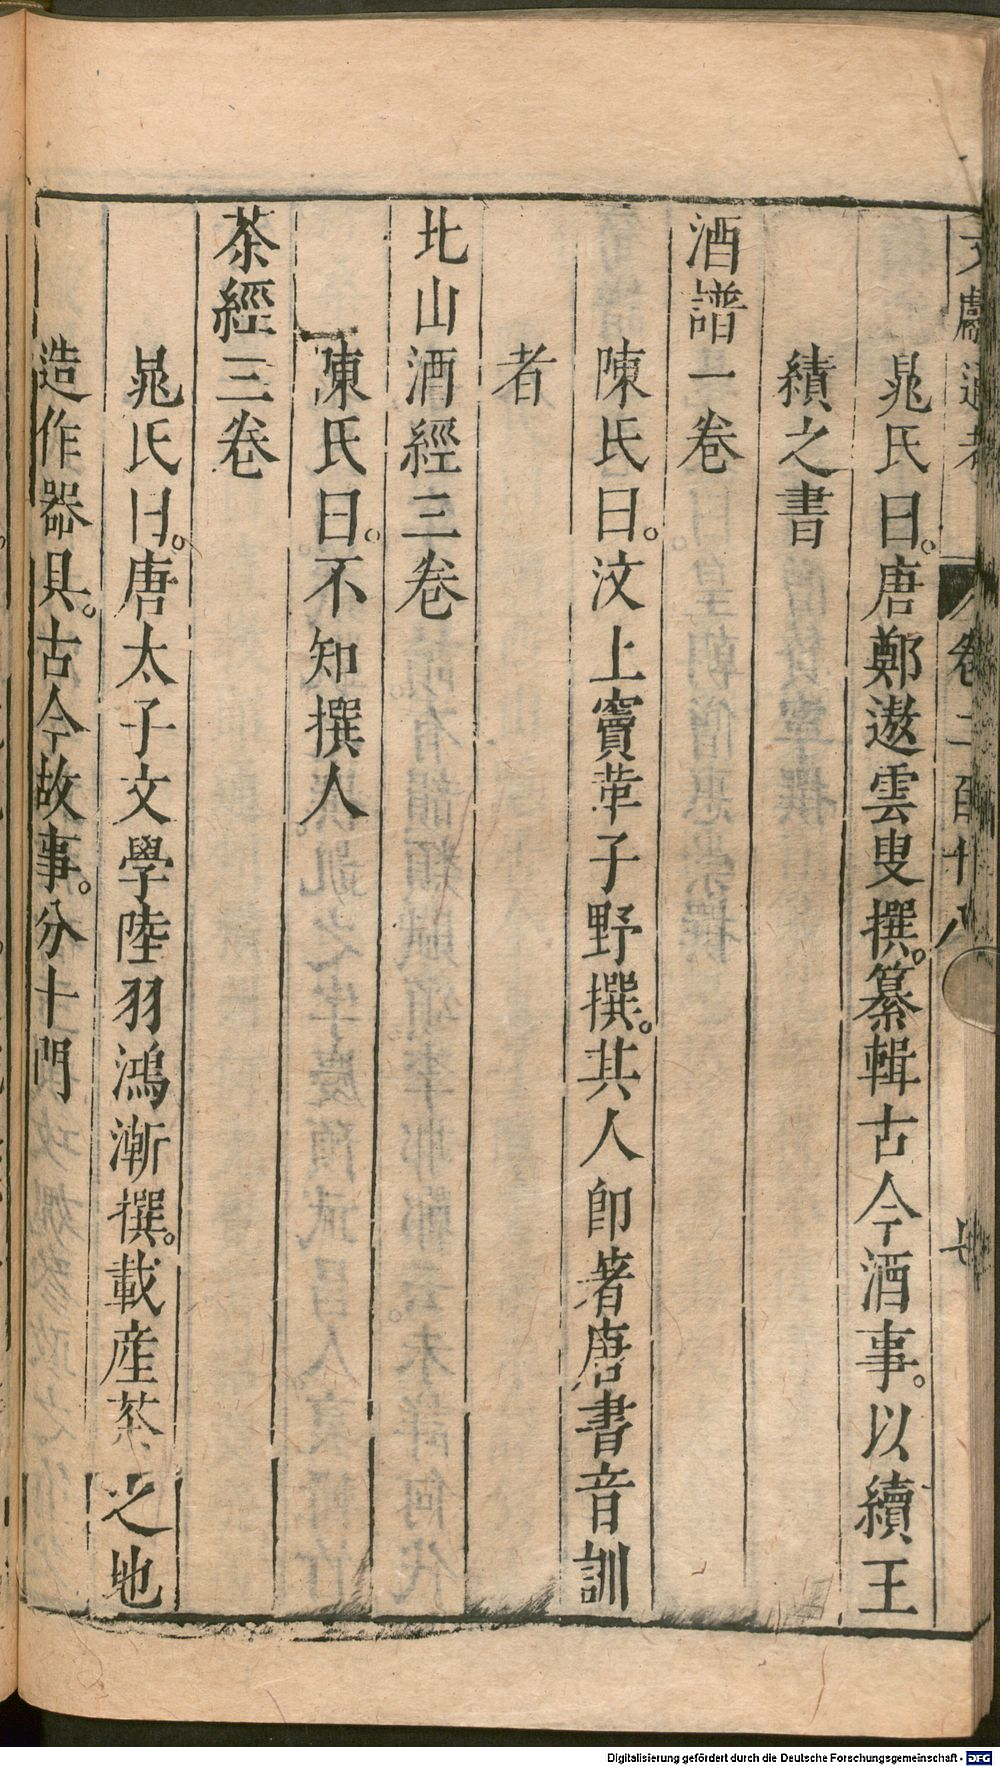 文獻通考 卷二百十八
晁氏曰。唐鄭遨雲叟撰。纂輯古今酒事。以續王
績之書
酒譜一卷
陳氏曰。汶上竇苹子野撰。其人卽著唐書音訓
者
北山酒經三卷
陳氏曰。不知撰人
茶經三卷
晁氏曰。唐太子文學陸羽鴻漸撰。載産茶之地
造作器具。古今故事。分十門
Digitalisierung gefördert durch die Deutsche Forschungsgemeinschaft - DFG